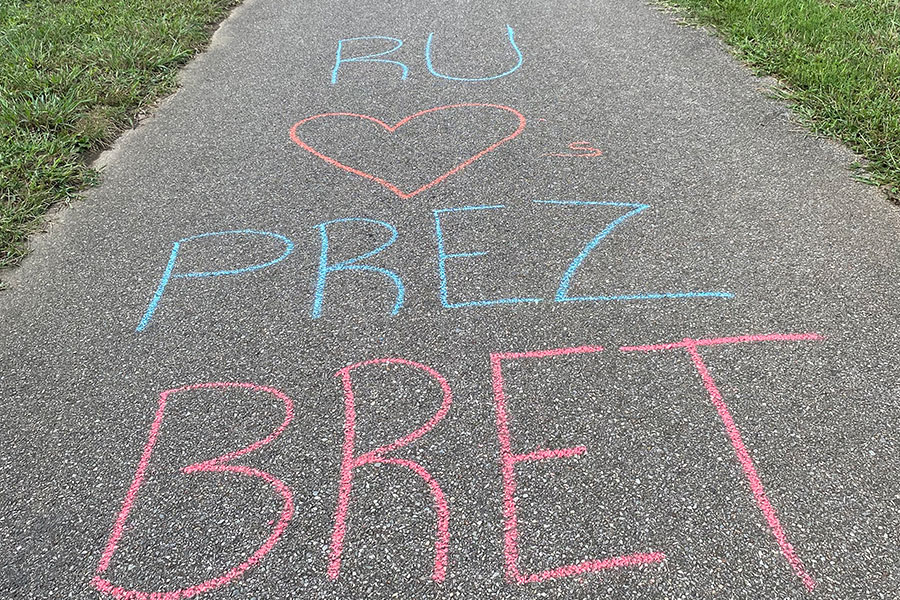 RU
♥'s
PREZ
BRET